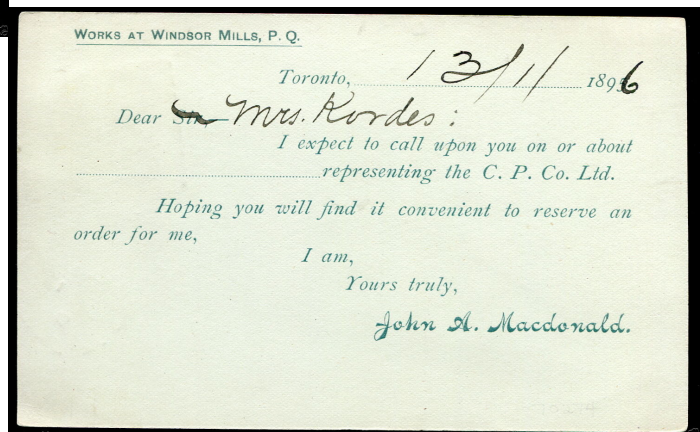 WORKS AT WINDSOR MILLS, P. Q.
Toronto, 13/11/ 1896
Dear Sir, Mrs. Kordes:
I expect to call upon you on or about
representing the C. P. Co. Ltd.
Hoping you will find it convenient to reserve an
order for me,
I am,
Yours truly,
John A. Macdonald.